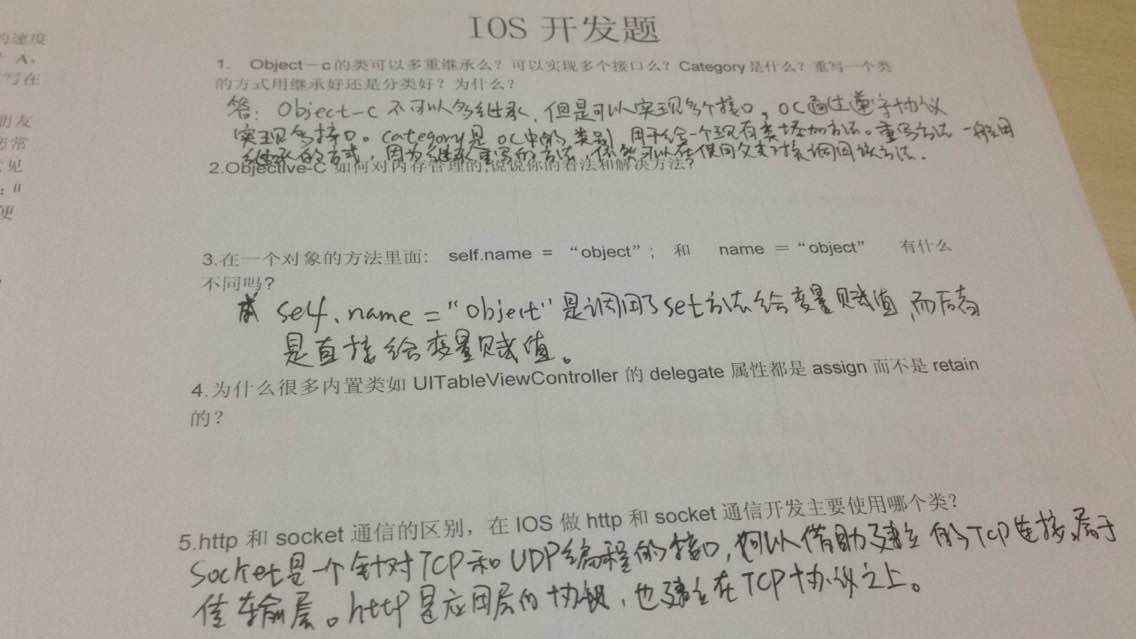 的速度
A.
写在
朋友
常
见
便
IOS 开发题
1. Object－c的类可以多重继承么？可以实现多个接口么？Category是什么？重写一个类
的方式用继承好还是分类好？为什么？
答：Object-C 不可以多继承，但是可以实现多个接口。OC通过遵守协议
实现多接口。category是OC中的类别，用于给一个现有类添加方法。重写方法一般用
继承的方式，因为继承重写的方法，依然可以在使用父类时候调用该方法.
2.Objective-C 如何对内存管理的,说说你的看法和解决方法？
3.在一个对象的方法里面: self.name = “object”; 和 name ＝“object” 有什么
不同吗?
self.name = "object"是调用了set方法给变量赋值,而后者
是直接给变量赋值。
4.为什么很多内置类如 UITableViewController 的 delegate 属性都是 assign 而不是 retain
的？
5.http 和 socket 通信的区别，在 IOS 做 http 和 socket 通信开发主要使用哪个类？
Socket是一个针对TCP和UDP编程的接口,可以借助建立的TCP连接,属于
传输层。http是应用层的协议，也建立在TCP协议之上。